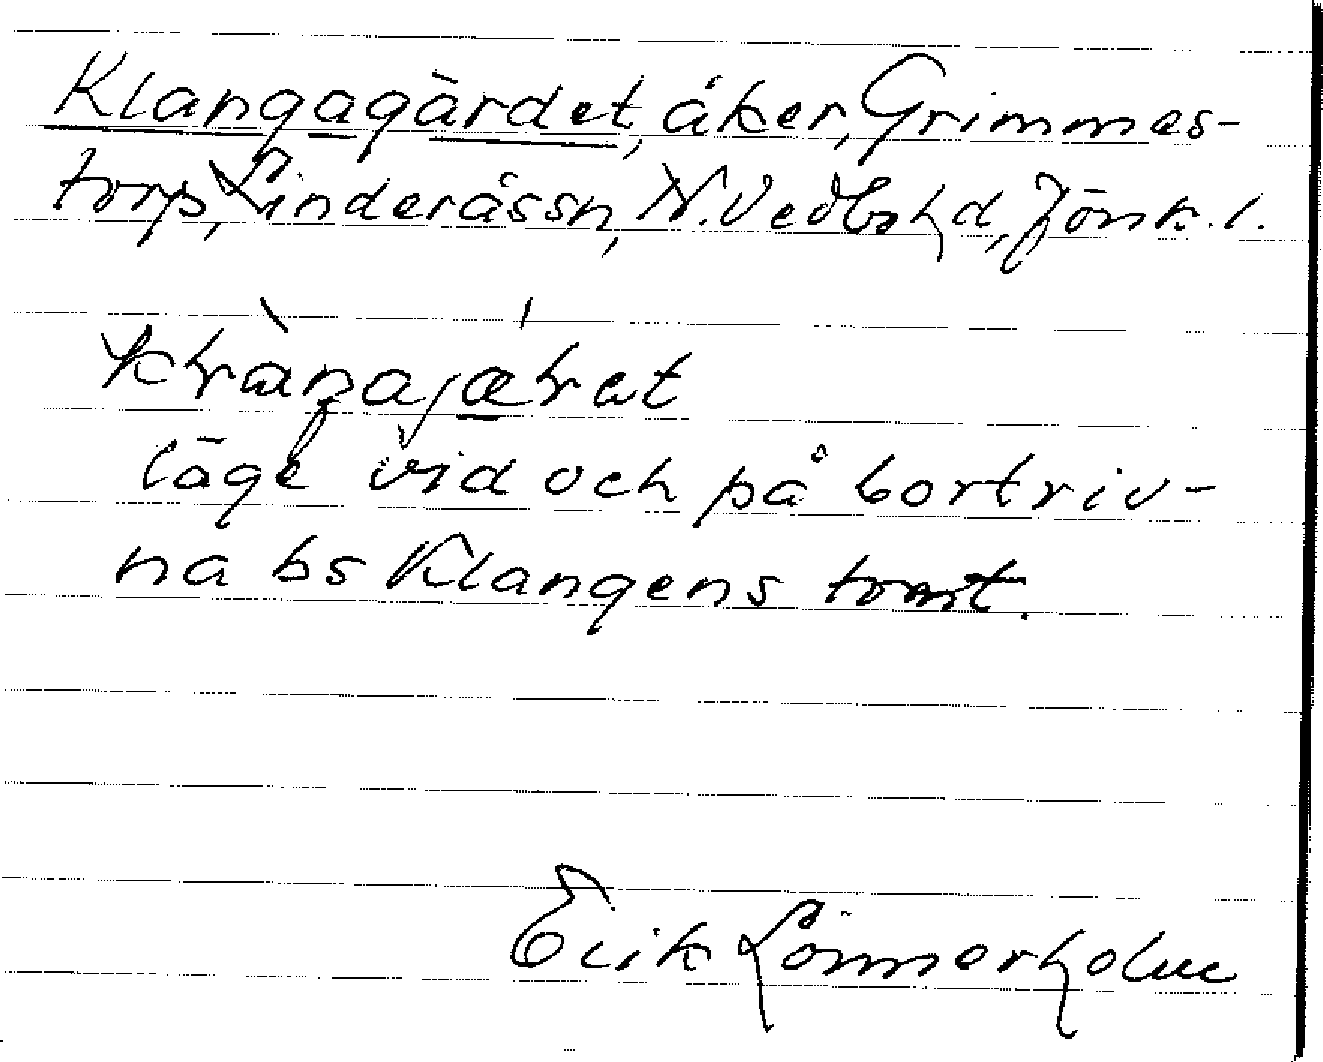 Klangagärdet, åker, Grimmes-
torp, Linderåssn, N. Vedbohd, Jönk. l.
läge vid och på bortriv-
na bs Klangens tomt.
Erik Lönnerholm